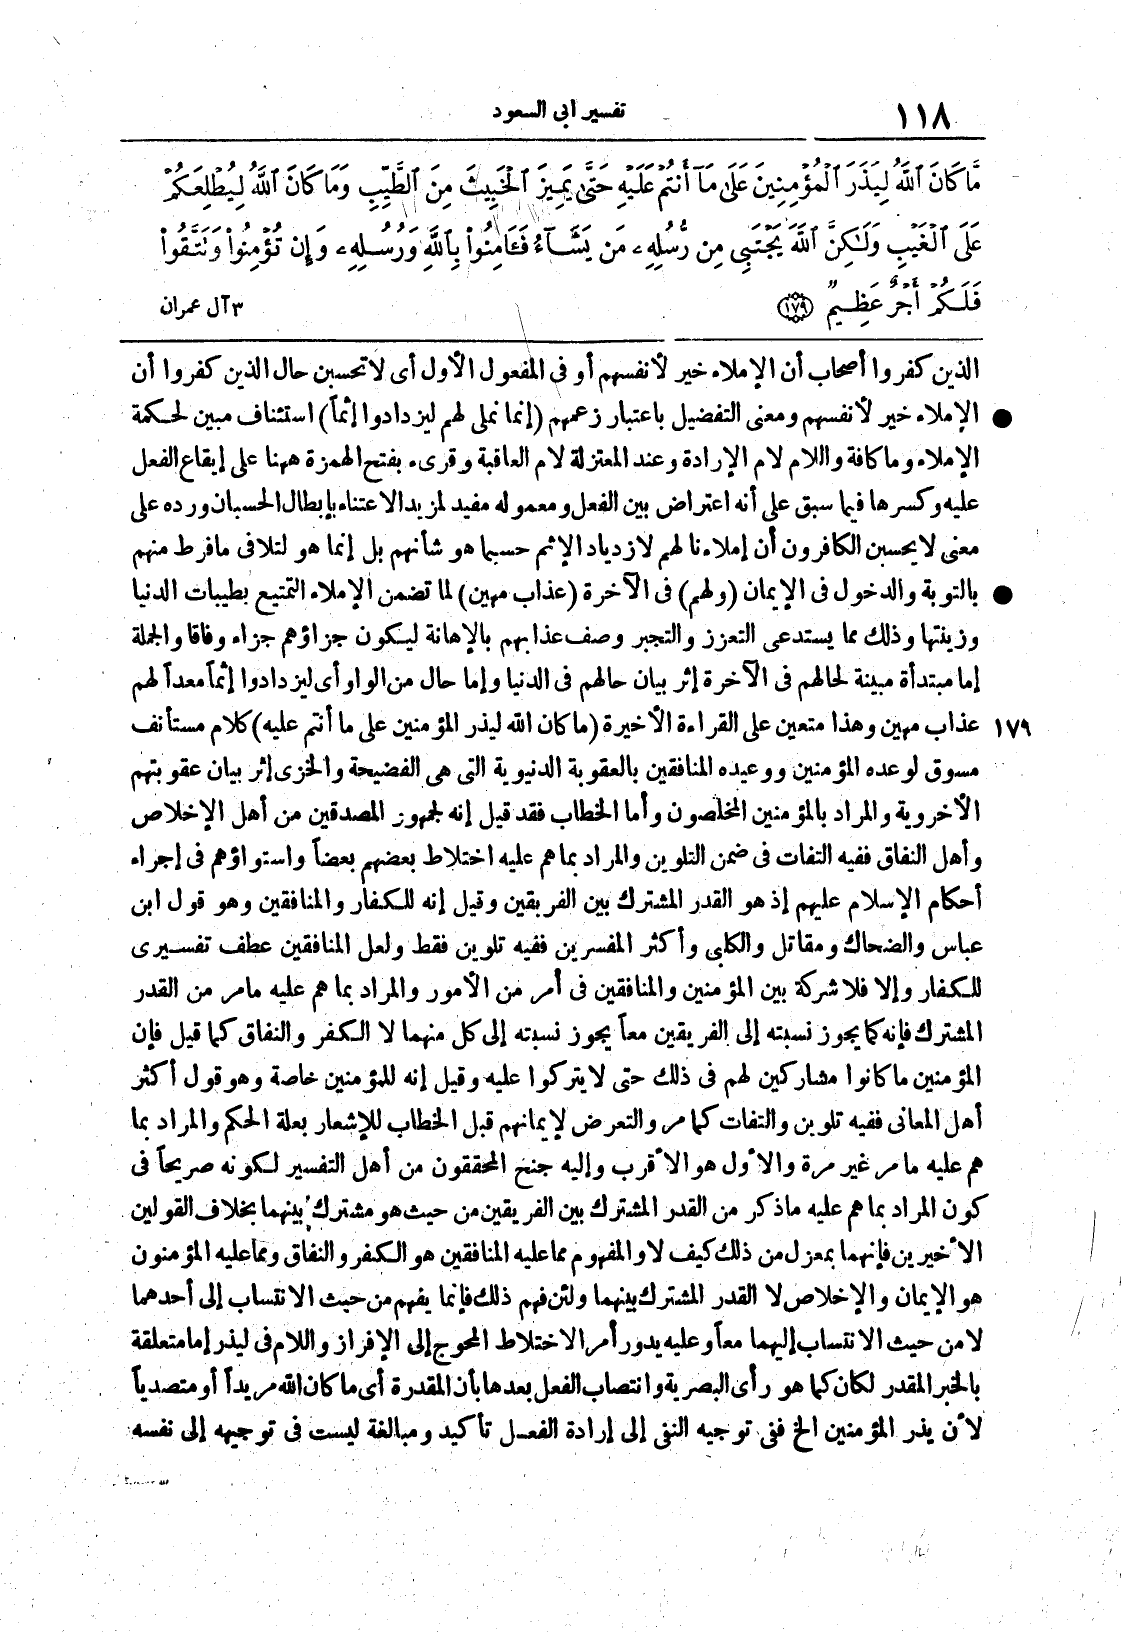 ١١٨
تفسير أبى السعود
مَّا كَانَ ٱللَّهُ لِيَذَرَ ٱلْمُؤْمِنِينَ عَلَىٰ مَآ أَنتُمْ عَلَيْهِ حَتَّىٰ يَمِيزَ ٱلْخَبِيثَ مِنَ ٱلطَّيِّبِ وَمَا كَانَ ٱللَّهُ لِيُطْلِعَكُمْ
عَلَى ٱلْغَيْبِ وَلَٰكِنَّ ٱللَّهَ يَجْتَبِى مِن رُّسُلِهِۦ مَن يَشَآءُ فَـَٔامِنُوا۟ بِٱللَّهِ وَرُسُلِهِۦ وَإِن تُؤْمِنُوا۟ وَتَتَّقُوا۟
فَلَكُمْ أَجْرٌ عَظِيمٌ ١٧٩ ٣ آل عمران
الذين كفروا أصحاب أن الإملاء خير لأنفسهم أو فى المفعول الأول أى لا تحسبن حال الذين كفروا أن
● الإملاء خير لأنفسهم ومعنى التفضيل باعتبار زعمهم (إنما نملى لهم ليزدادوا إثماً) استئناف مبين لحكمة
الإملاء وما كافة واللام لام الإرادة وعند المعتزلة لام العاقبة وقرىء بفتح الهمزة ههنا على إيقاع الفعل
عليه وكسرها فيما سبق على أنه اعتراض بين الفعل ومعموله مفيد لمزيد الاعتناء بإبطال الحسبان ورده على
معنى لا يحسبن الكافرون أن إملاءنا لهم لازدياد الإثم حسبما هو شأنهم بل إنما هو لتلافى مافرط منهم
● بالتوبة والدخول فى الإيمان (ولهم) فى الآخرة (عذاب مهين) لما تضمن الإملاء التمتيع بطيبات الدنيا
وزينتها وذلك مما يستدعى التعزز والتجبر وصف عذابهم بالإهانة ليكون جزاؤهم جزاء وفاقا والجملة
إما مبتدأة مبينة لحالهم فى الآخرة إثر بيان حالهم فى الدنيا وإما حال من الواو أى ليزدادوا إثماً معداً لهم
١٧٩ عذاب مهين وهذا متعين على القراءة الأخيرة (ما كان الله ليذر المؤمنين على ما أنتم عليه) كلام مستأنف
مسوق لوعده المؤمنين ووعيده المنافقين بالعقوبة الدنيوية التى هى الفضيحة والخزى إثر بيان عقوبتهم
الأخروية والمراد بالمؤمنين المخلصون وأما الخطاب فقد قيل إنه لجمهور المصدقين من أهل الإخلاص
وأهل النفاق ففيه التفات فى ضمن التلوين والمراد بما هم عليه اختلاط بعضهم بعضاً واستواؤهم فى إجراء
أحكام الإسلام عليهم إذ هو القدر المشترك بين الفريقين وقيل إنه للكفار والمنافقين وهو قول ابن
عباس والضحاك ومقاتل والكلبى وأكثر المفسرين ففيه تلوين فقط ولعل المنافقين عطف تفسيرى
للكفار وإلا فلا شركة بين المؤمنين والمنافقين فى أمر من الأمور والمراد بما هم عليه مامر من القدر
المشترك فإنه كما يجوز نسبته إلى الفريقين معاً يجوز نسبته إلى كل منهما لا الكفر والنفاق كما قيل فإن
المؤمنين ما كانوا مشاركين لهم فى ذلك حتى لا يتركوا عليه وقيل إنه للمؤمنين خاصة وهو قول أكثر
أهل المعانى ففيه تلوين والتفات كما مر والتعرض لإيمانهم قبل الخطاب للإشعار بعلة الحكم والمراد بما
هم عليه ما مر غير مرة والأول هو الأقرب وإليه جنح المحققون من أهل التفسير لكونه صريحاً فى
كون المراد بما هم عليه ماذكر من القدر المشترك بين الفريقين من حيث هو مشترك بينهما بخلاف القولين
الأخيرين فإنهما بمعزل من ذلك كيف لا والمفهوم مما عليه المنافقين هو الكفر والنفاق ومما عليه المؤمنون
هو الإيمان والإخلاص لا القدر المشترك بينهما ولئن فهم ذلك فإنما يفهم من حيث الانتساب إلى أحدهما
لا من حيث الانتساب إليهما معاً وعليه يدور أمر الاختلاط المحوج إلى الإفراز واللام فى ليذر إما متعلقة
بالخبر المقدر لكان كما هو رأى البصرية وانتصاب الفعل بعدها بأن المقدرة أى ما كان الله مريداً أو متصدياً
لأن يذر المؤمنين الخ ففى توجيه النفى إلى إرادة الفعل تأكيد ومبالغة ليست فى توجيهه إلى نفسه